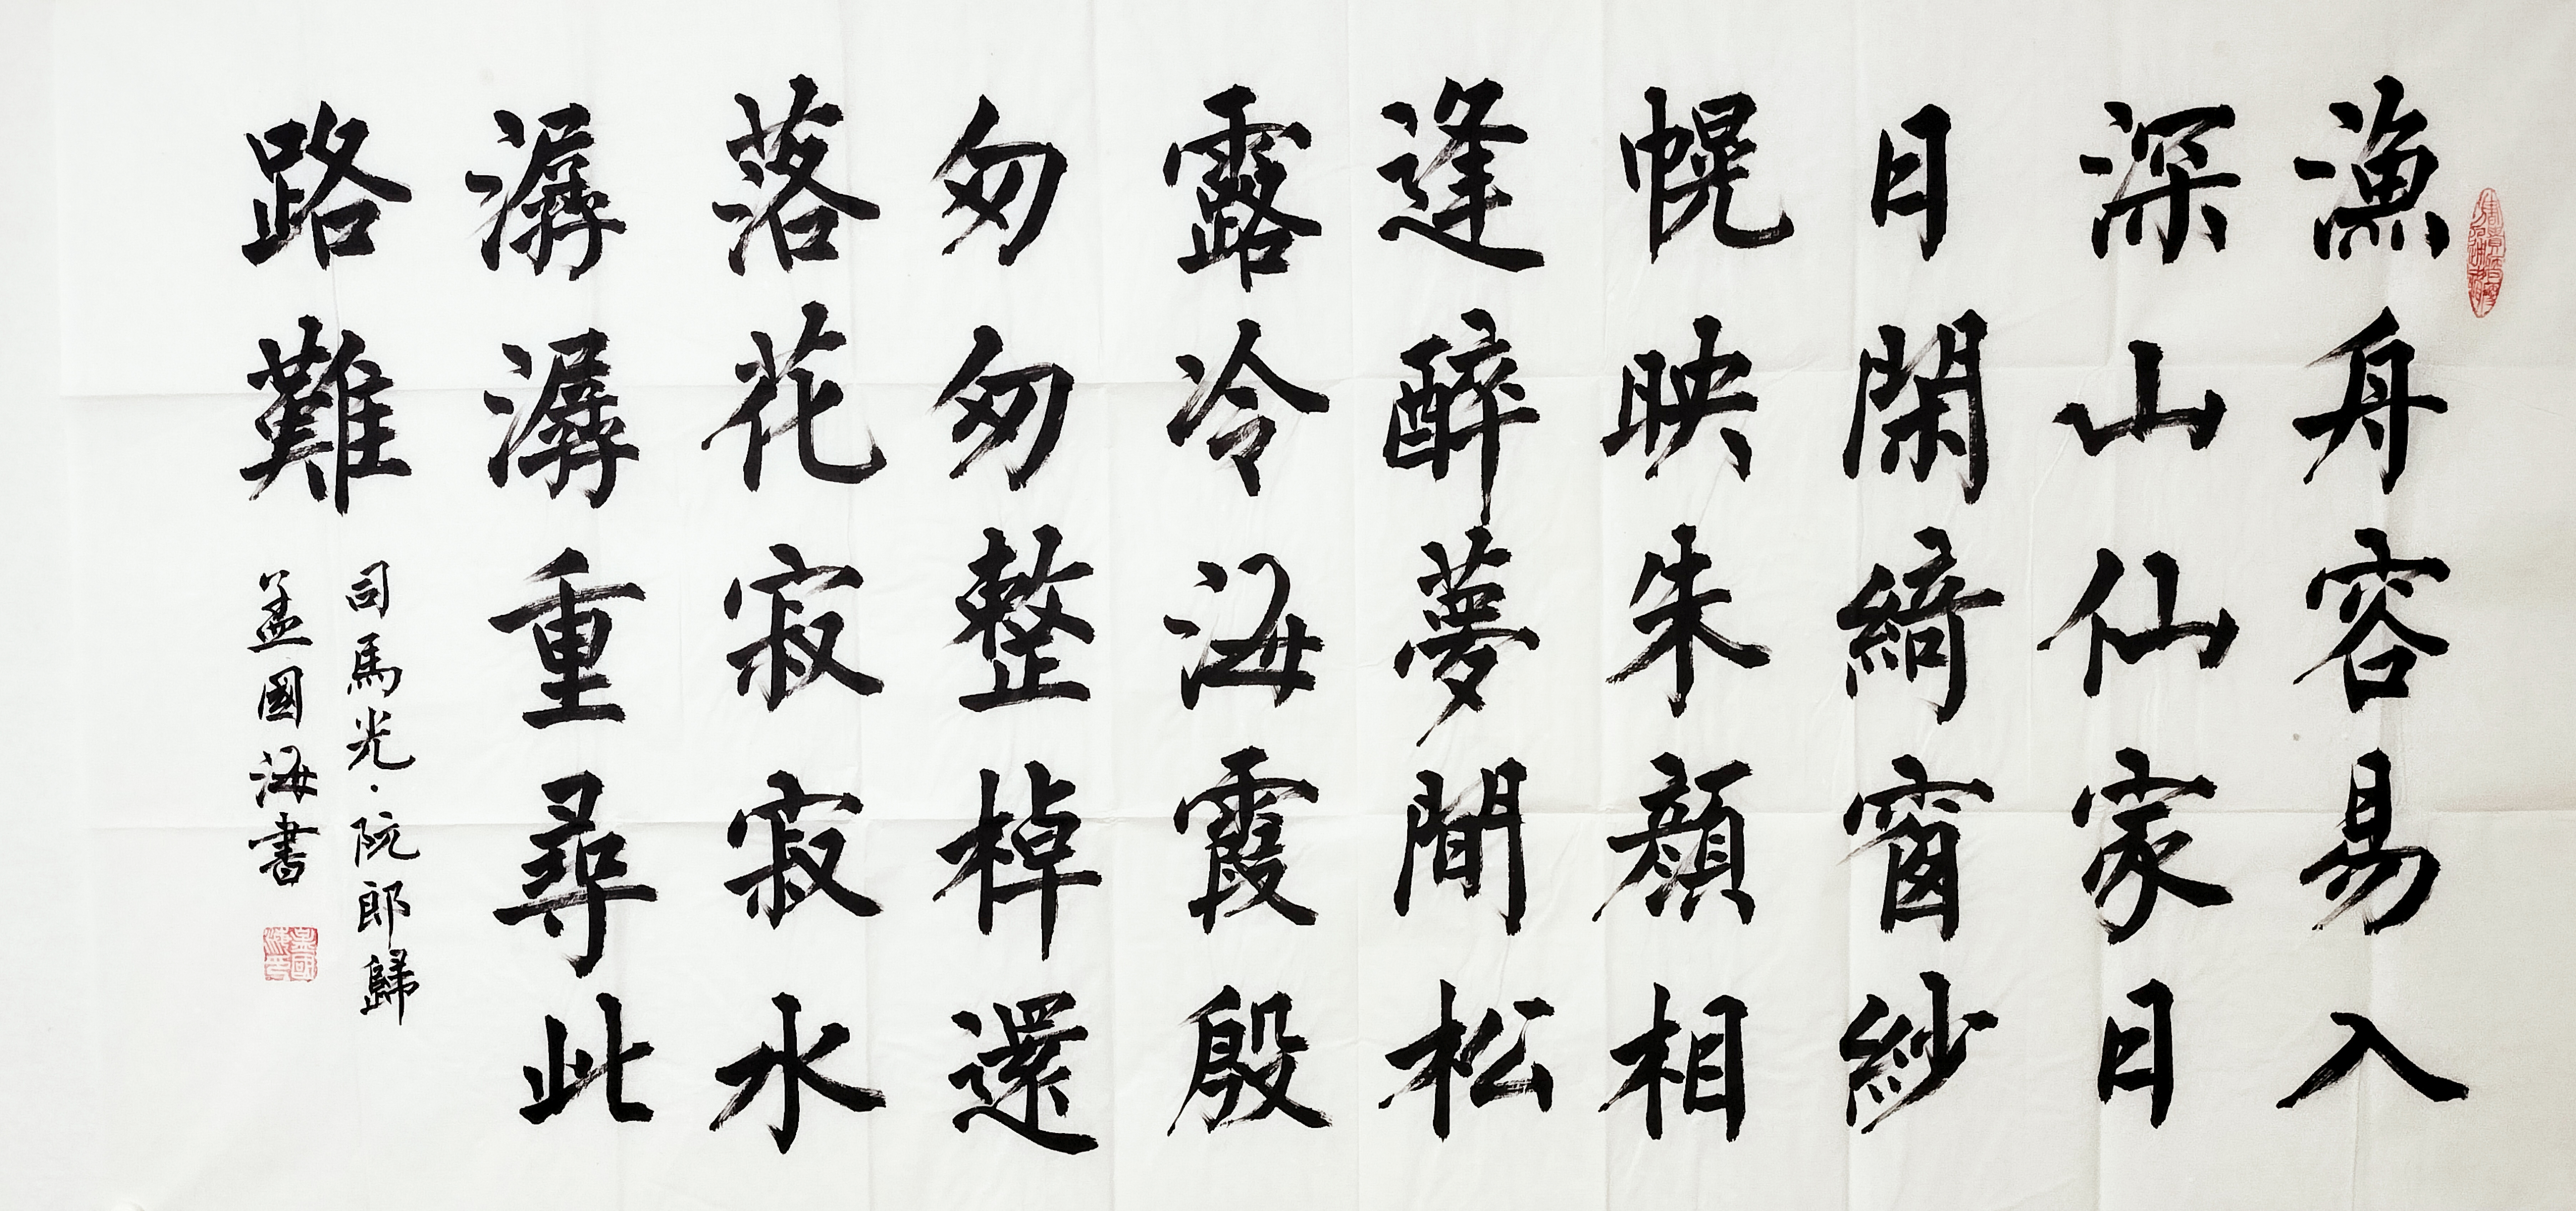 漁舟容易入
深山仙家日
月閑綺窗紗
幌映朱顏相
逢醉夢間松
露冷海霞殷
匆匆整棹還
落花寂寂水
潺潺重尋此
路難
司馬光·阮郎歸
孟國海書